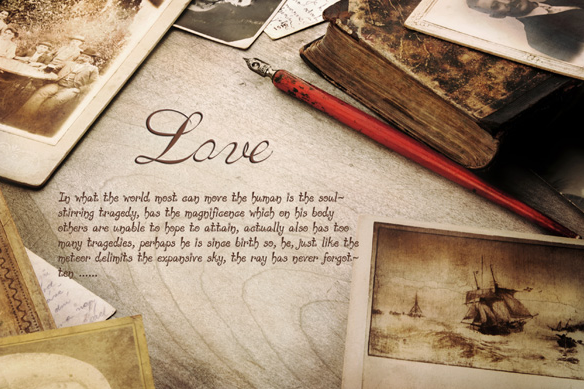 Love
In what the world most can move the human is the soul~
stirring tragedy, has the magnificence which on his body
others are unable to hope to attain, actually also has too
many tragedies, perhaps he is since birth so, he, just like the
meteor delimits the expansive sky, the ray has never forgot~
ten ......